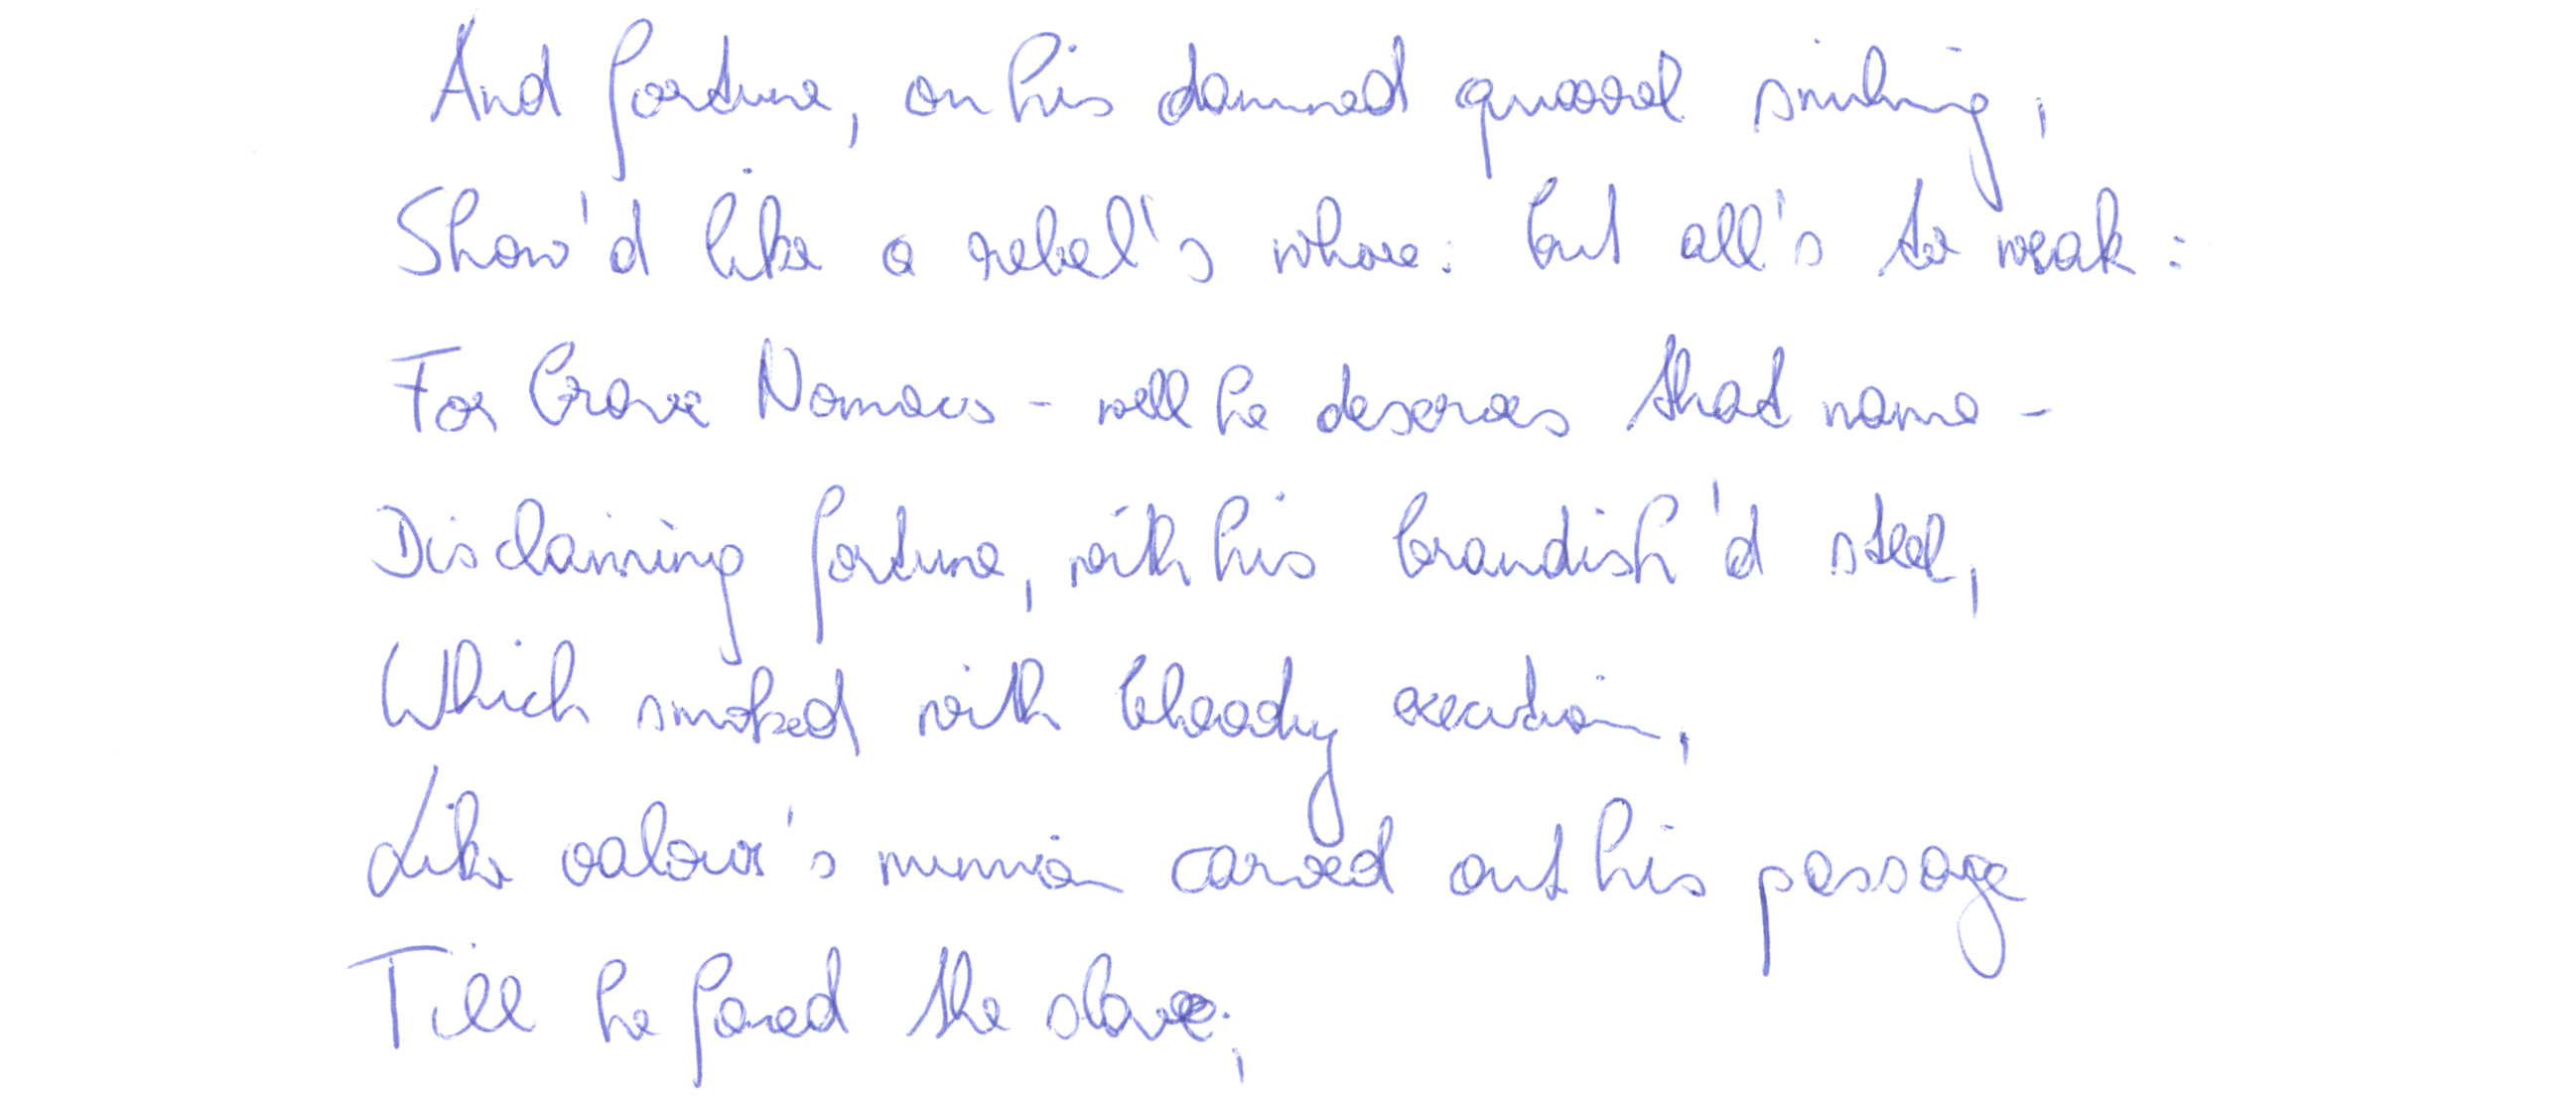 And fortune, on his damned quarrel smiling,
Show'd like a rebel's whore: but all's too weak:
For brave Nomacs - well he deserves that name -
Disclaiming fortune, with his brandish'd steel,
Which smoked with bloody execution,
Like valour's minion carved out his passage
Till he faced the slave;